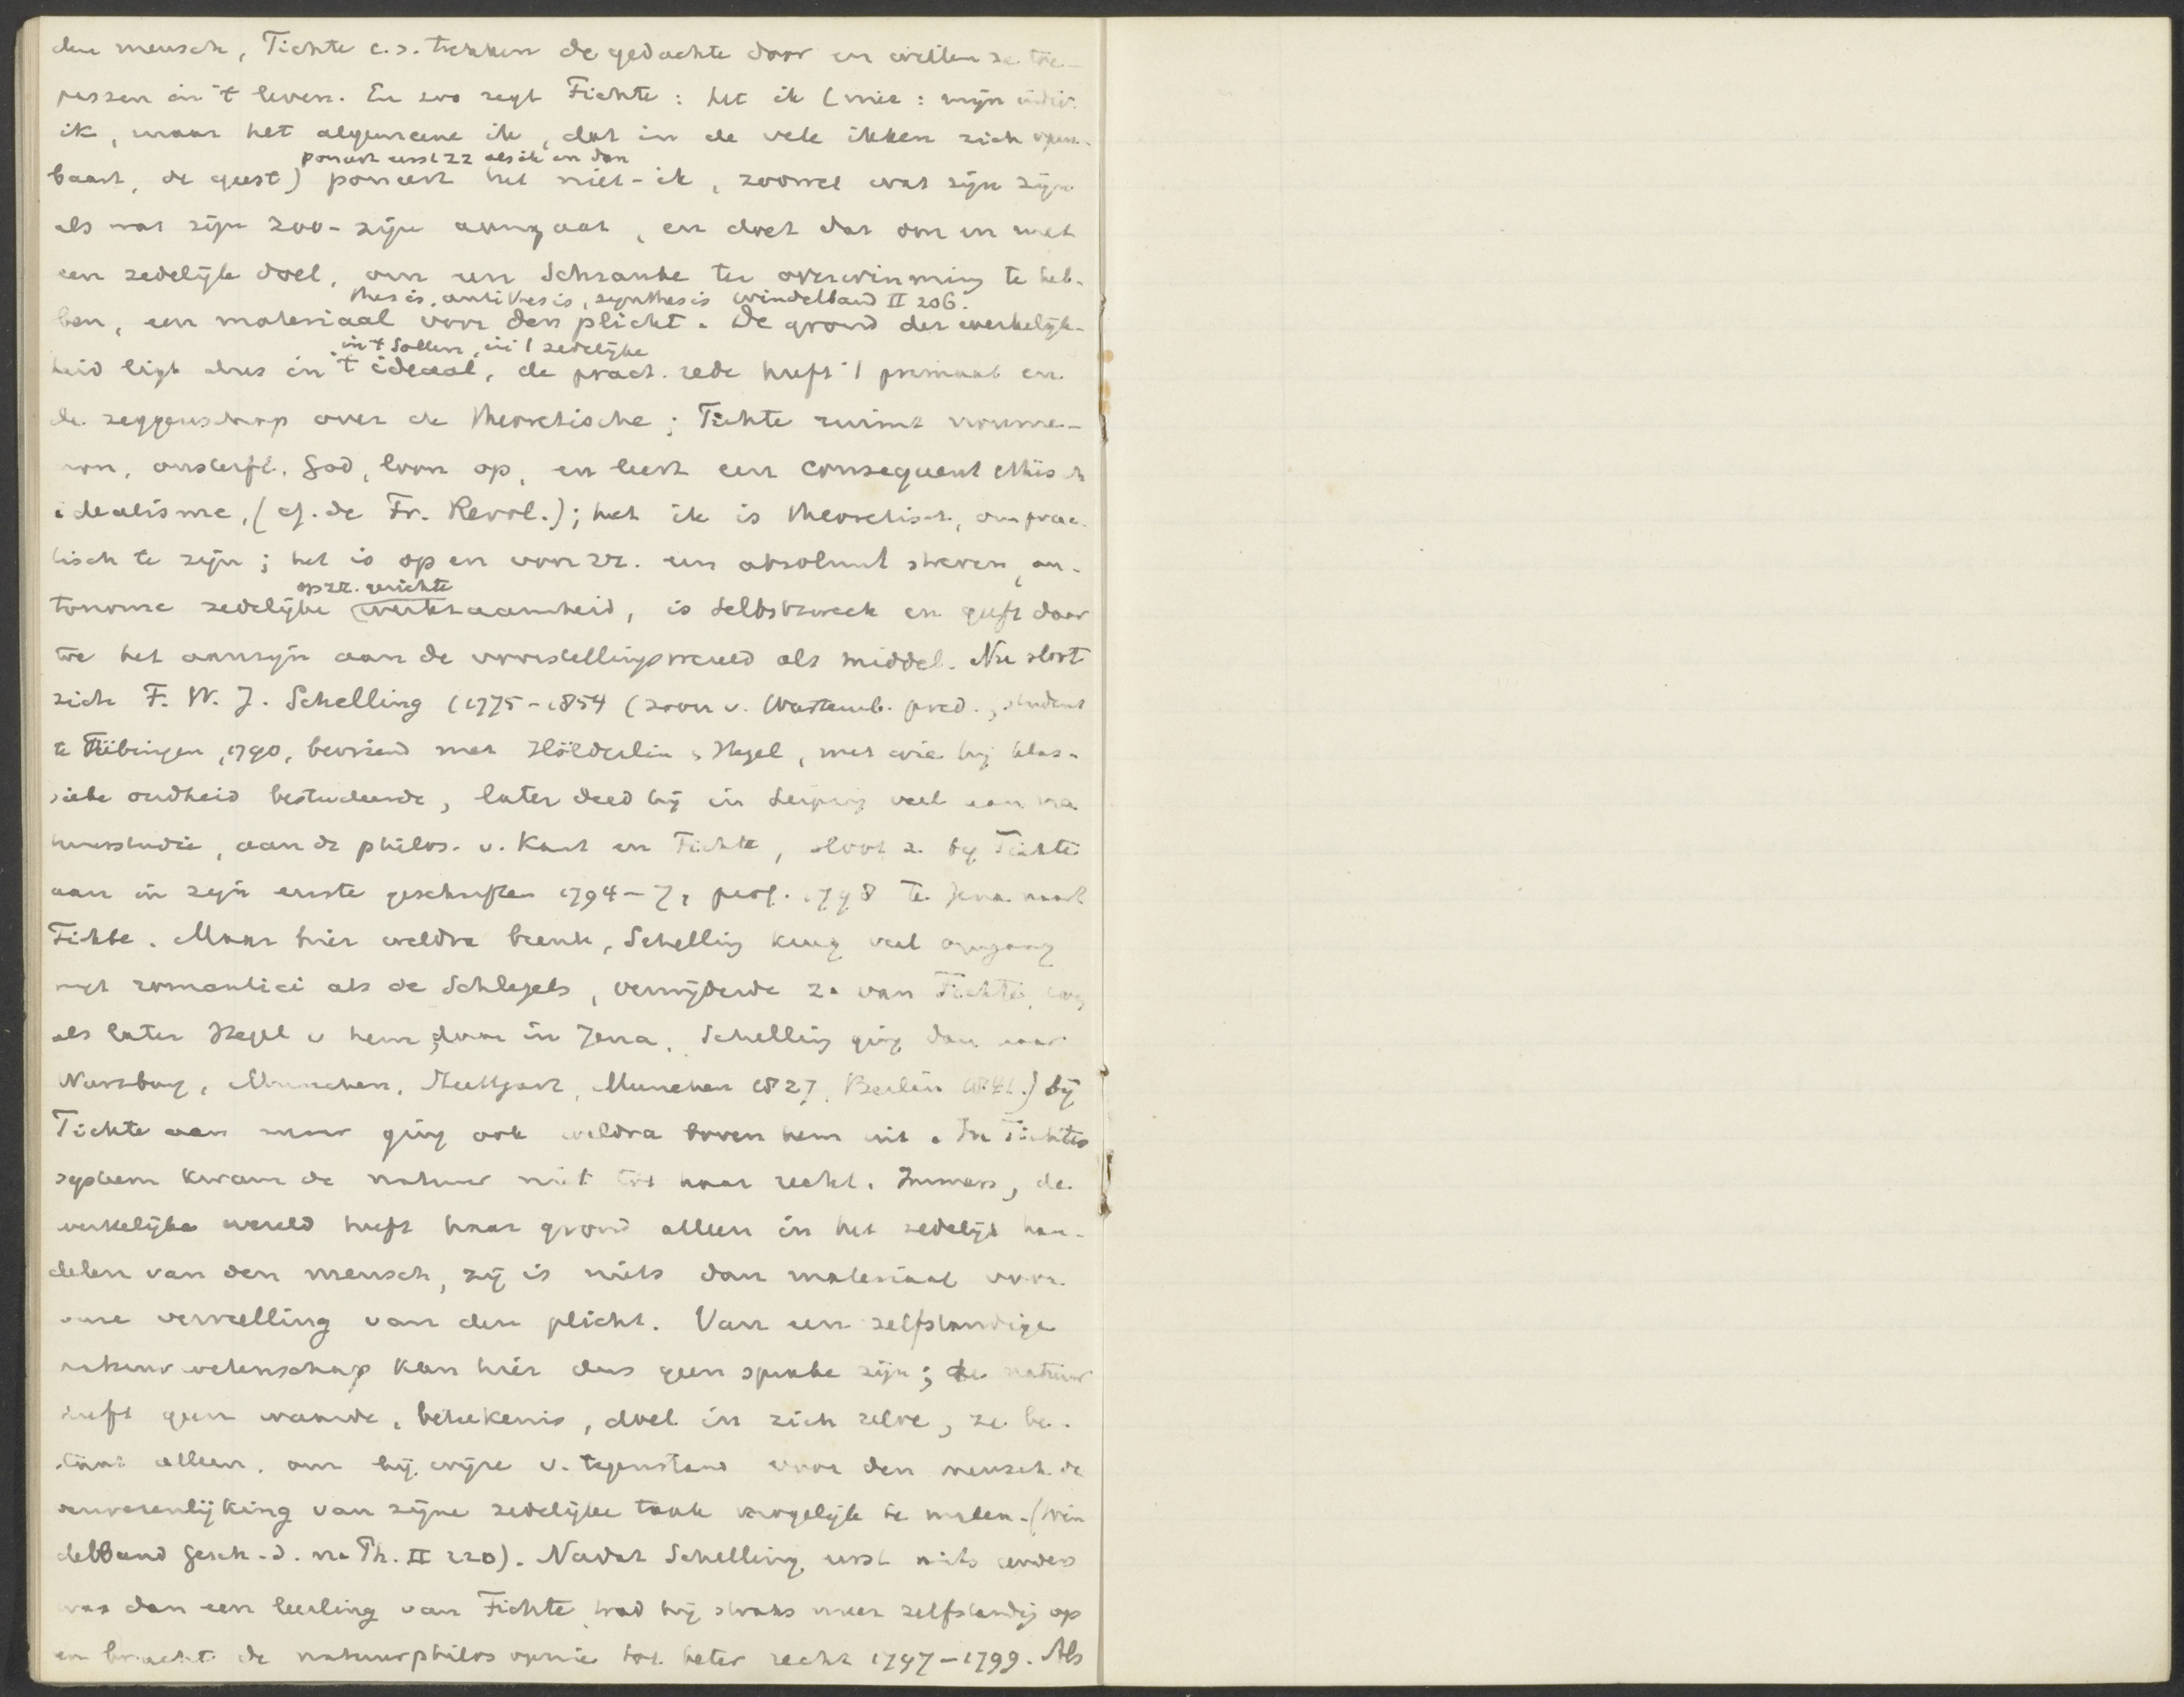 den mensch, Fichte c.s. trekken de gedachte door en willen ze toe-
passen in 't leven. En zoo zegt Fichte: het ik (niet: mijn indiv.
ik, maar het algemeene ik, dat in de vele ikken zich open-
poneert eerst zz als ik en dan
baart, de geest) poneert het niet-ik, zoowel wat zijn zijn
als wat zijn zoo-zijn aangaat, en doet dat om en met
een zedelijk doel, om een Schranke ter overwinning te heb-
thesis, antithesis, synthesis Windelband II 206.
ben, een materiaal voor den plicht. De grond der werkelijk-
in 't Sollen, in 't zedelijke
heid ligt dus in 't ideaal, de pract. rede heeft 't primaat en
de zeggenschap over de theoretische; Fichte ruimt noume-
non, onsterfl. God, loon op, en leert een consequent ethisch
idealisme, (cf. de Fr. Revol.); het ik is theoretisch, om prac-
tisch te zijn; het is op en voor zz. een absoluut streven, au-
op zz. gerichte
tonome zedelijke werkzaamheid, is Selbstzweck en geeft daar
toe het aanzijn aan de voorstellingswereld als middel. Nu sloot
zich F. W. J. Schelling (1775-1854 (zoon v. Wurtemb. pred., student
te Tübingen, 1790, bevriend met Hölderlin & Hegel, met wie hij klas-
sieke oudheid bestudeerde, later deed hij in Leipzig veel aan na
tuurstudie, aan de philos. v. Kant en Fichte, sloot z. bij Fichte
aan in zijn eerste geschriften 1794-7, prof. 1798 te Jena naast
Fichte. Maar hier weldra breuk, Schelling kreeg veel omgang
met romantici als de Schlegels, verwijderde z. van Fichte,
als later Hegel v hem, daar in Jena. Schelling ging dan naar
Wurzburg, Munchen, Stuttgart, Munchen 1827, Berlin 1841.) bij
Fichte aan maar ging ook weldra boven hem uit. In Fichtes
systeem kwam de natuur niet tot haar recht. Immers, de
werkelijke wereld heeft haar grond alleen in het zedelijk han-
delen van den mensch, zij is niets dan materiaal voor
onze vervulling van den plicht. Van een zelfstandige
natuurwetenschap kan hier dus geen sprake zijn; de natuur
heeft geen waarde, beteekenis, doel in zich zelve, ze be-
staat alleen, om bij wijze v. tegenstand voor den mensch de
verwezenlijking van zijne zedelijke taak mogelijk te maken. (Win
delband Gesch. d. n. Ph. II 220). Nadat Schelling eerst niets anders
was dan een leerling van Fichte, trad hij straks meer zelfstandig op
en bracht de natuurphilosophie tot beter recht 1797-1799. Als